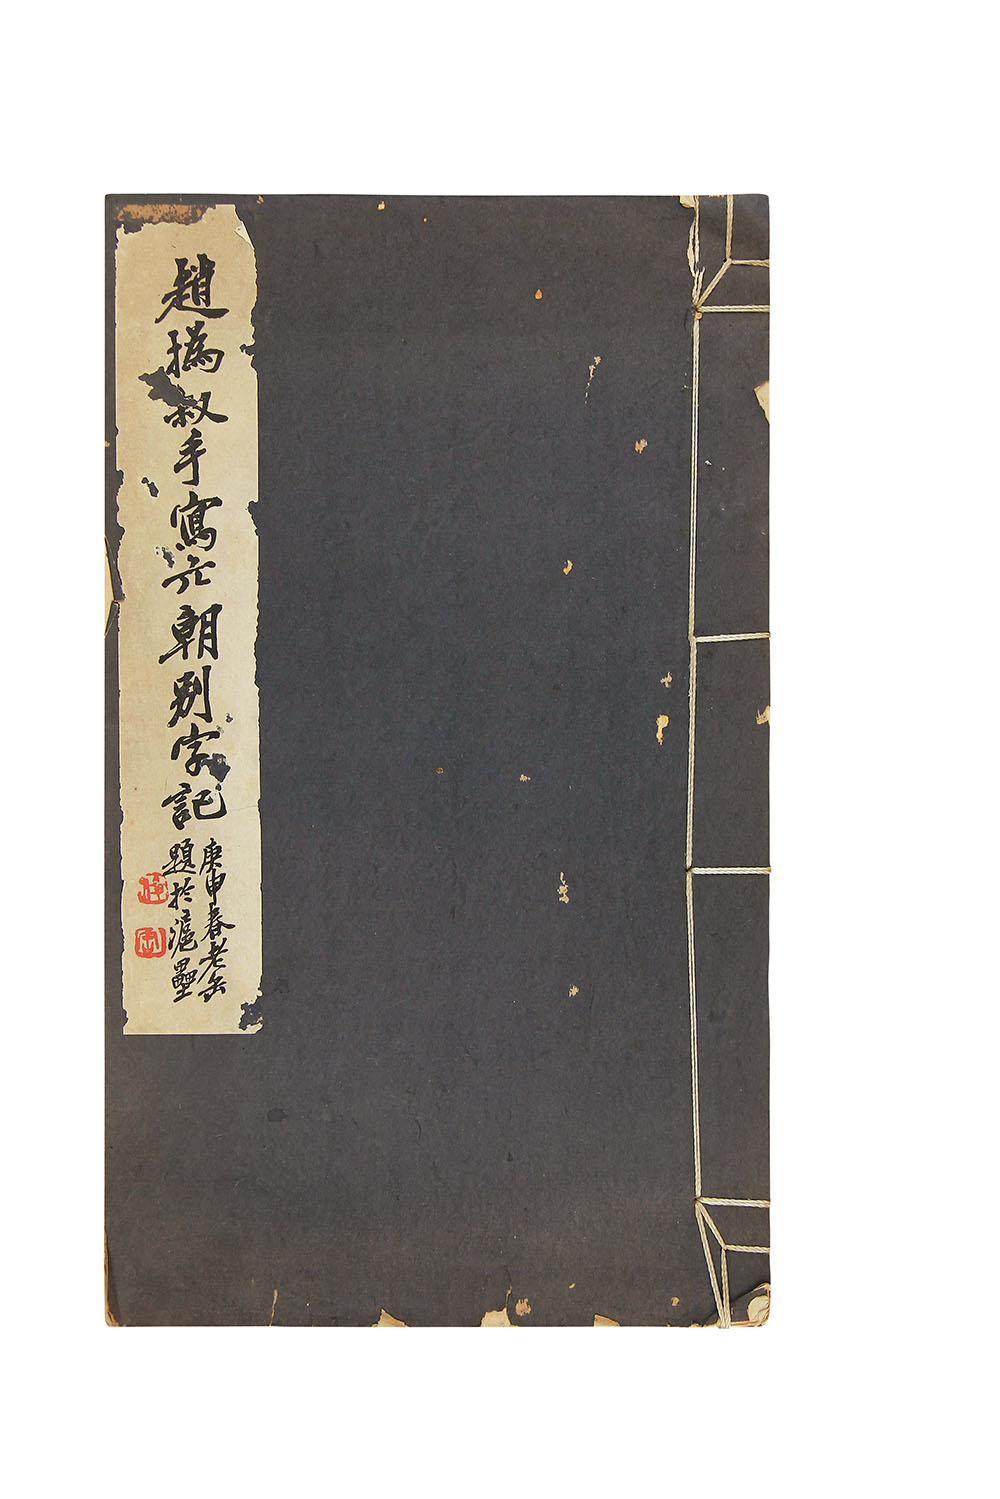 趙撝叔手寫六朝別字記
庚申春老缶
題於滬壘